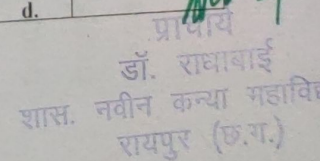 d.
प्राचार्य
डॉ. राधाबाई
शास. नवीन कन्या महावि
रायपुर (छ.ग.)